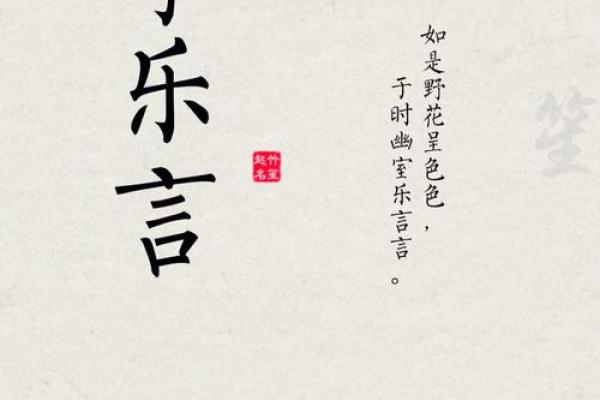 笙
如是野花呈色色，
于时幽室乐言言。
竹笙
起名
乐言